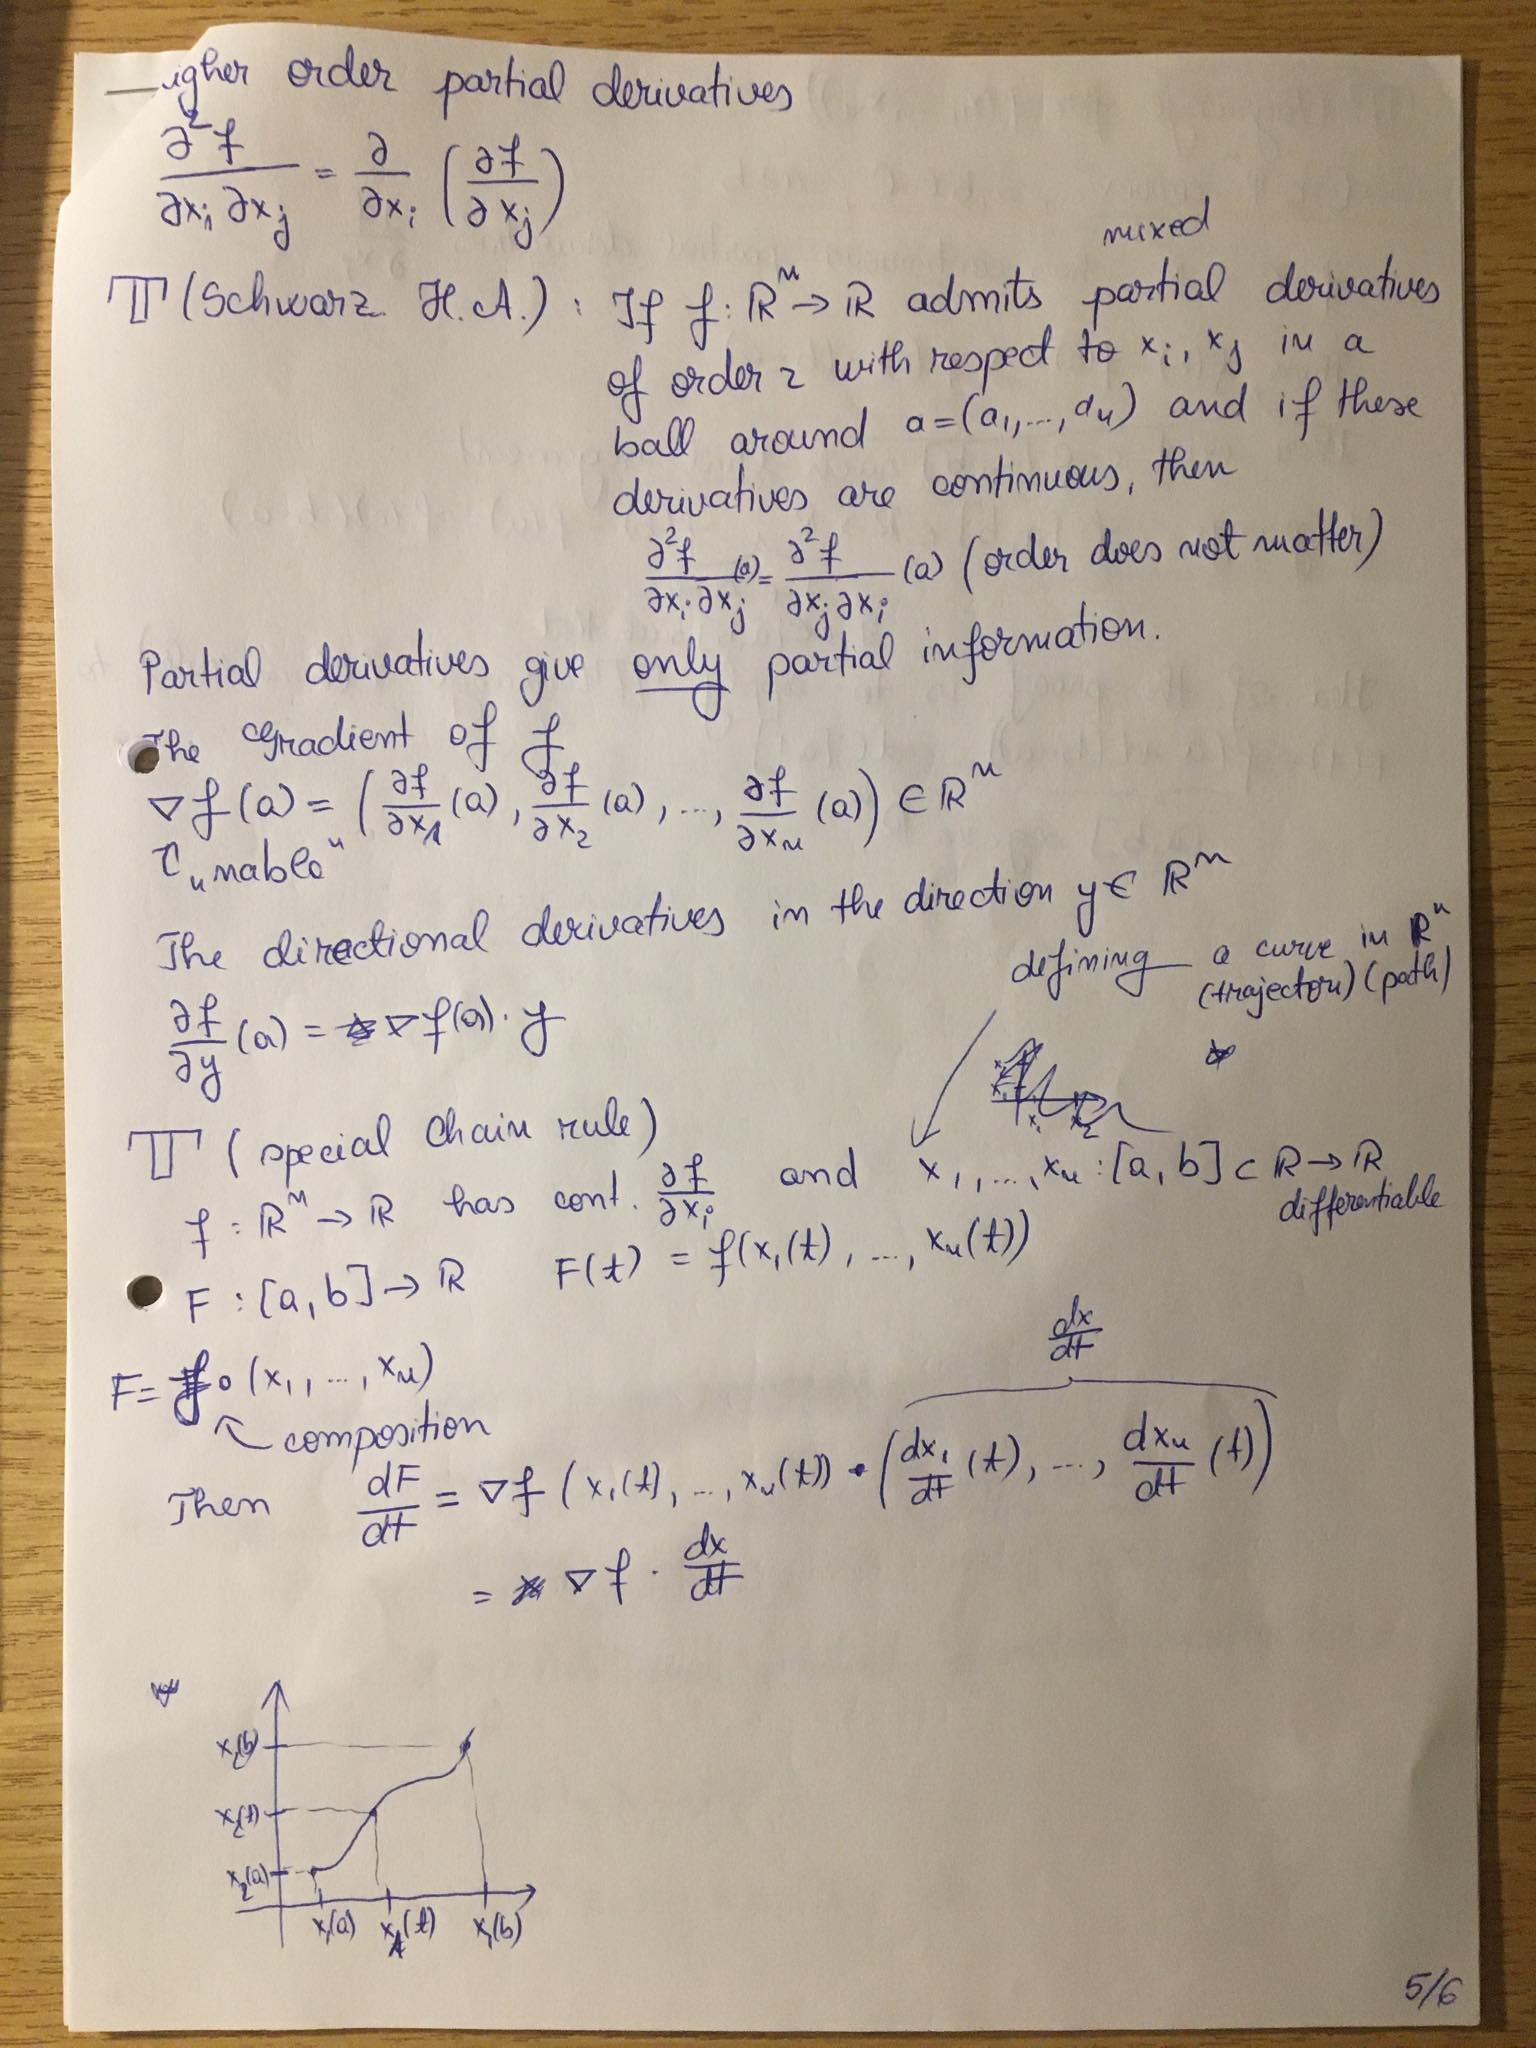 igher order partial derivatives
∂²f/∂xᵢ∂xⱼ = ∂/∂xᵢ (∂f/∂xⱼ)
mixed
T (Schwarz H.A.): If f: ℝⁿ → ℝ admits partial derivatives
of order 2 with respect to xᵢ, xⱼ in a
ball around a=(a₁,...,aₙ) and if these
derivatives are continuous, then
∂²f/∂xᵢ∂xⱼ (a) = ∂²f/∂xⱼ∂xᵢ (a) (order does not matter)
Partial derivatives give only partial information.
The Gradient of f
∇f(a) = (∂f/∂x₁ (a), ∂f/∂x₂ (a), ..., ∂f/∂xₙ (a)) ∈ ℝⁿ
„nabla"
The directional derivatives in the direction y ∈ ℝⁿ
defining a curve in ℝⁿ
(trajectory) (path)
∂f/∂y (a) = ∇f(a) · y
*
x₁ x₂
T (special Chain rule)
f: ℝⁿ → ℝ has cont. ∂f/∂xᵢ and x₁,...,xₙ: [a,b] ⊂ ℝ → ℝ
differentiable
F: [a,b] → ℝ F(t) = f(x₁(t), ..., xₙ(t))
dx/dt
F = f∘(x₁, ..., xₙ)
composition
Then dF/dt = ∇f (x₁(t), ..., xₙ(t)) · (dx₁/dt (t), ..., dxₙ/dt (t))
= ∇f · dx/dt
*
x₂(b)
x₂(t)
x₂(a)
x₁(a) x₁(t) x₁(b)
5/6